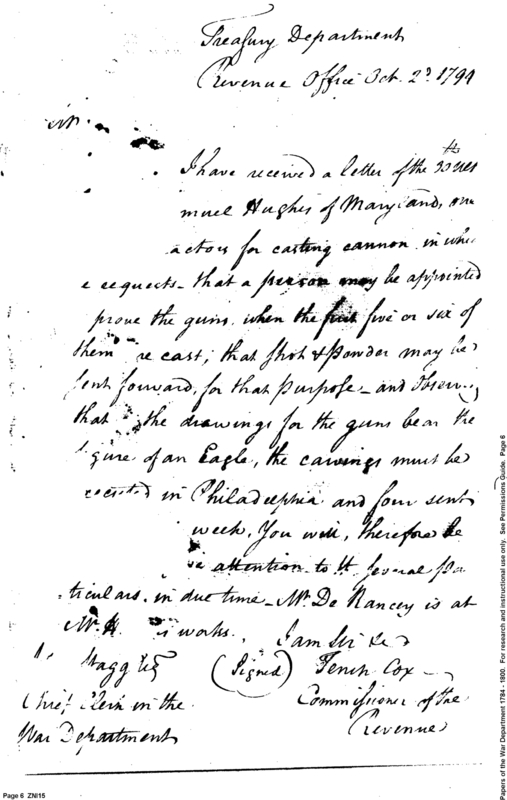 Treasury Department
Revenue Office Oct. 2d 1794
I have received a letter of the
muel Hughes of Maryland,
actors for casting cannon in
requests that a person may be appointed
prove the guns, when the first five or six of
them re cast; that shot & powder may be
sent forward, for that purpose and
that the drawings for the guns bear the
gure of an Eagle, the carvings must be
in Philadelphia and four sent
week. You will, therefore
attention to several pa
ticulars, in due time. Mr. De Nancey is at
Mr. H works. I am Sir &c
Stagg (Signed) Tench Cox
Chief Clerk in the Commissioner of the
War Department Revenue
Page 6 ZNI15
Papers of the War Department 1784 - 1800. For research and instructional use only. See Permissions Guide. Page 6